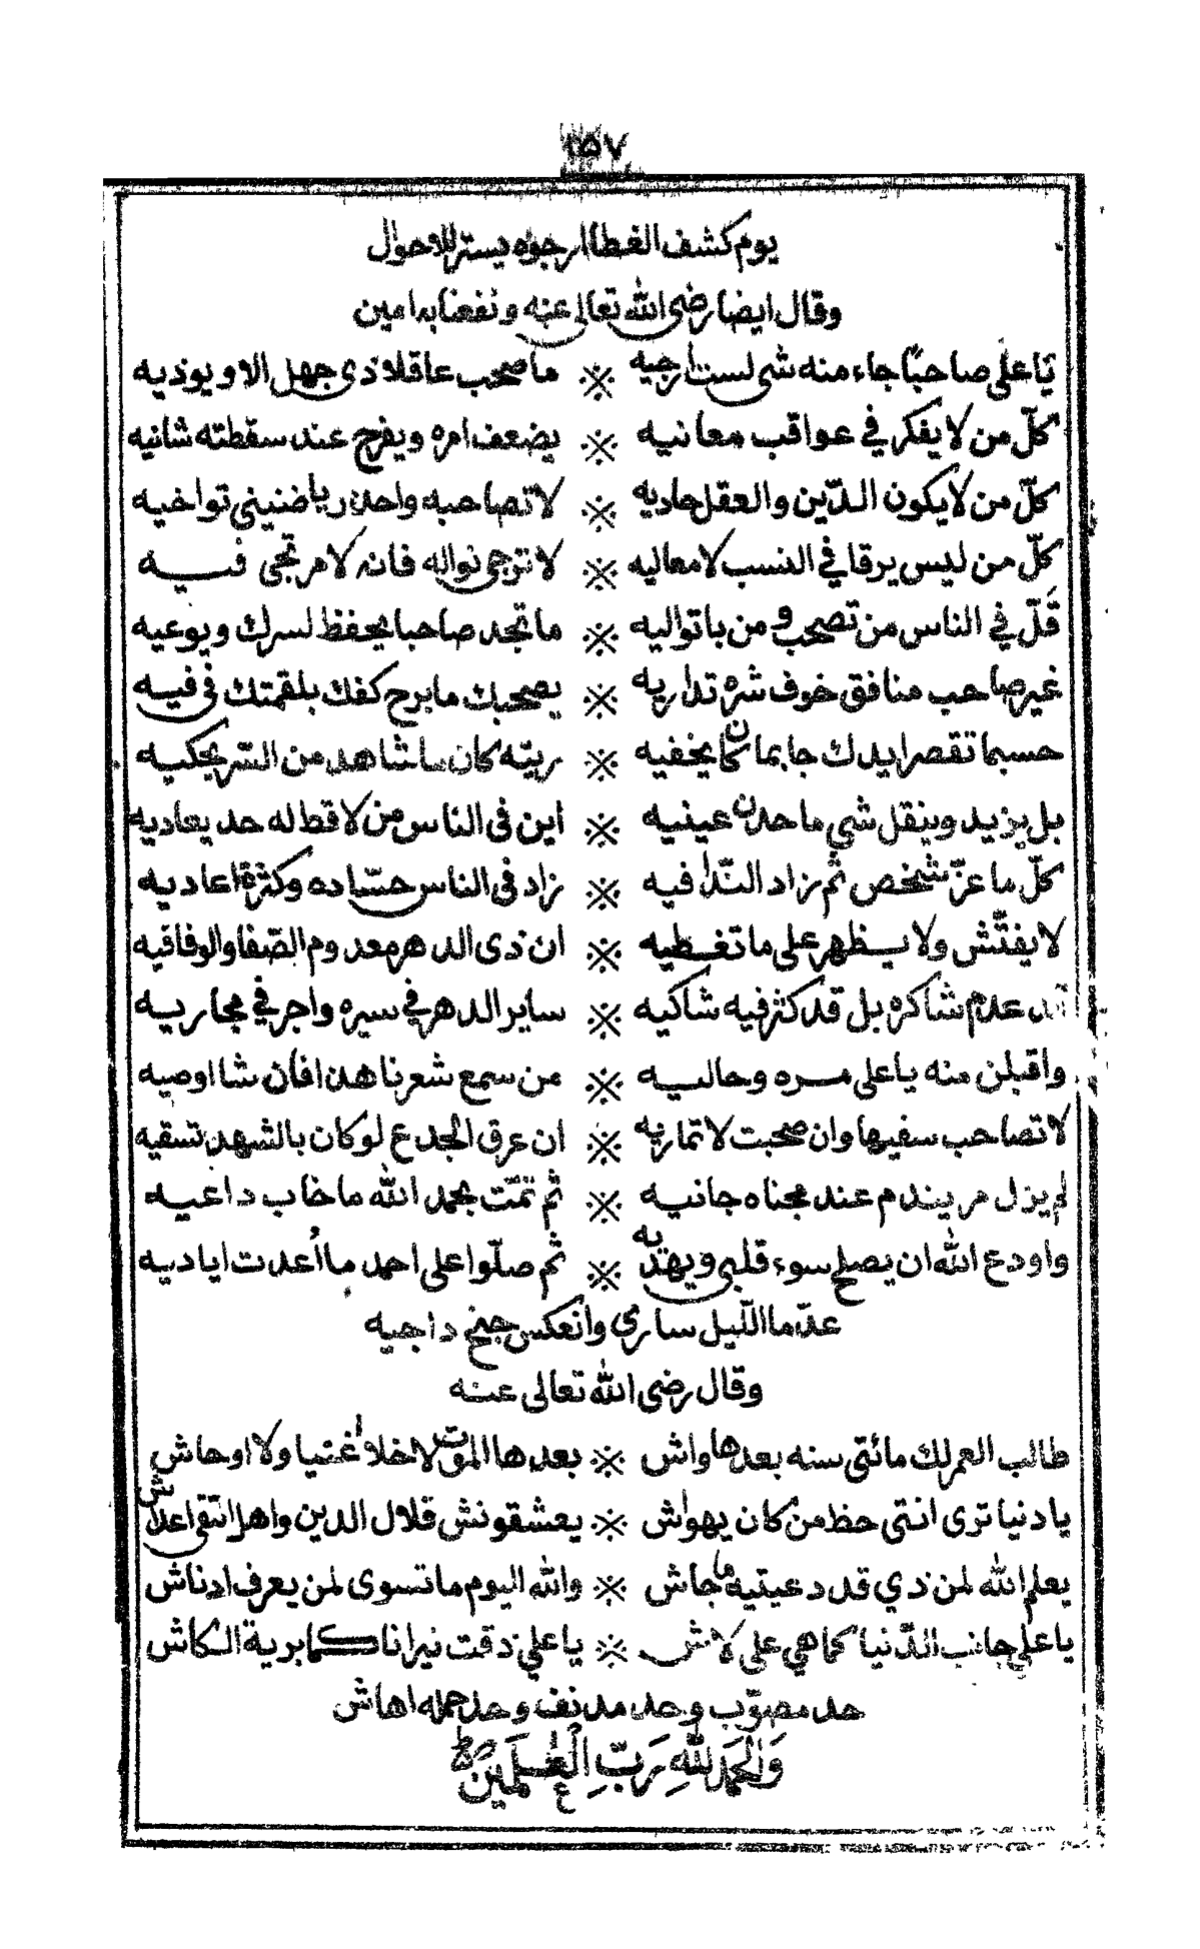 ١٥٧
يوم كشف الغطا ارجوه يستر للاحوال
وقال ايضا رضى الله تعالى عنه ونفعنا به امين
يا على صاحبًا جاء منه شى لست ارجيه ※ ما صحب عاقلا ذى جهل الا ويوذيه
كلّ من لا يفكر في عواقب معانيه ※ يضعف امره ويفرح عند سقطته شانيه
كلّ من لا يكون الدّين والعقل حاديه ※ لا تصاحبه واحذر يا ضنينى تواخيه
كلّ من ليس يرقا في النسب لا معاليه ※ لا ترجى نواله فانه لا مرتجى فيه
قَلّ في الناس من تصحب ومن با تواليه ※ ما تجد صاحبا يحفظ لسرك ويوعيه
غير صاحب منافق خوف شره تداريه ※ يصحبك ما برح كفك بلقمتك فى فيه
حسبما تقصر ايدك جا بما كان يخفيه ※ ريته كان ما شاهد من السّر يحكيه
بل يزيد وينقل شي ما حد ن عينيه ※ اين فى الناس من لا قط له حد يعاديه
كلّ ما عزّ شخص ثم زاد النّدا فيه ※ زاد فى الناس حسّاده وكثرة اعاديه
لا يفتّش ولا يظهر على ما تغطيه ※ ان ذى الدهر معدوم الصّفا والوفا فيه
قد عدم شاكره بل قد كثر فيه شاكيه ※ ساير الدهر في سيره واجر في مجاريه
واقبلن منه يا على مره وحاليه ※ من سمع شعرنا هذا فان شا اوصيه
لا تصاحب سفيها وان صحبت لا تماريه ※ ان عرق الجدع لو كان بالشهد تسقيه
لم يزل مر يندم عند مجناه جانيه ※ ثم تمّت بحمد الله ما خاب داعيه
واودع الله ان يصلح سوء قلبى ويهديه ※ ثم صلّوا على احمد ما اُعدت اياديه
عدّ ما اللّيل سارى وانعكس جنح داجيه
وقال رضى الله تعالى عنه
طالب العمر لك مائتى سنه بعدها واش ※ بعدها الموت لا خلا اغتيا ولا اوحاش
يا دنيا ترى انتى حظ من كان يهواش ※ يعشقونش قلال الدين واهل التقى اعداش
يعلم الله لمن ذي قد دعيتيه ما جاش ※ والله اليوم ما تسوى لمن يعرف ادناش
يا على جانب الدّنيا كما هي على لاش ※ يا على ذقت نيرانا كما برية الكاش
حد مصوّب وحد مدنف وحد حمله اهاش
وَالْحَمْدُ لِلّٰهِ رَبِّ الْعٰلَمِيْنَ